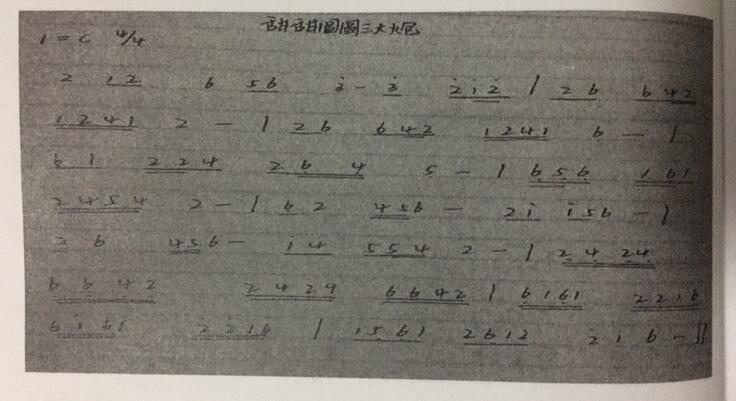 甜甜圓圓三大炮
1 = C 4/4
2 12 6 56 3̇ - 3̇ 2̇1̇2̇ | 26 642
1241 2 - | 26 642 1241 6 - |
61 224 26 4 5 - | 656 161
2454 2 - | 62 456 - 2i i56 - |
26 456 - i4 554 2 - | 2424
6642 2424 6642 | 6161 2216
6i61 2216 | 1561 2612 2i6 - ||